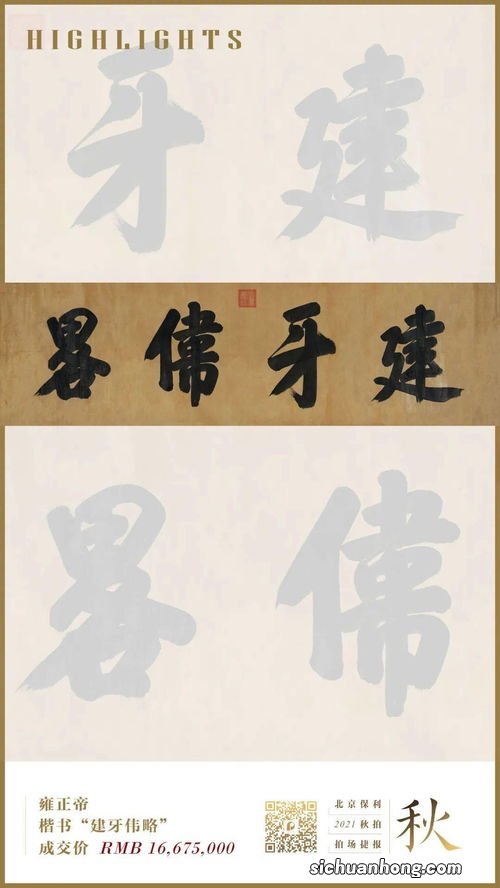 HIGHLIGHTS
建牙
建牙偉畧
偉畧
雍正帝
楷书“建牙伟略”
成交价 RMB 16,675,000
北京保利
2021 秋拍
拍场捷报
秋
sichuanhong.com